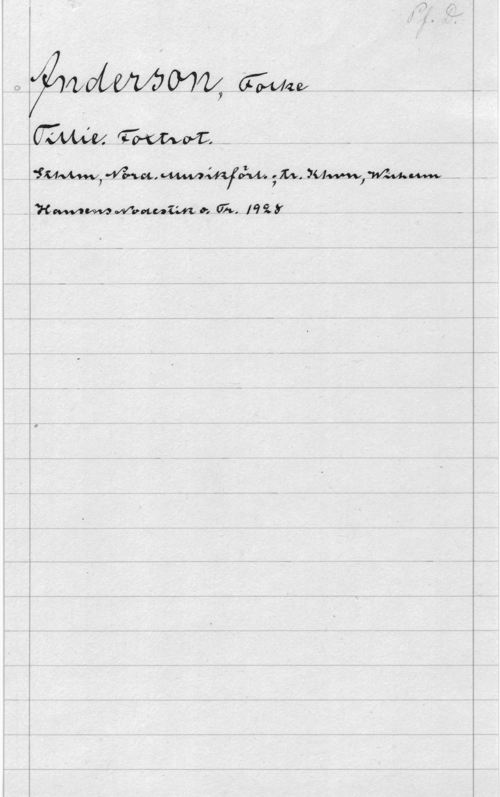 Pf. D.
Anderson, Folke
Tillie. Foxtrot.
Sthlm, Nord. Musikförl.; tr. Khvn, Wilhelm
Hansens Nodestik o. Tr. 1928